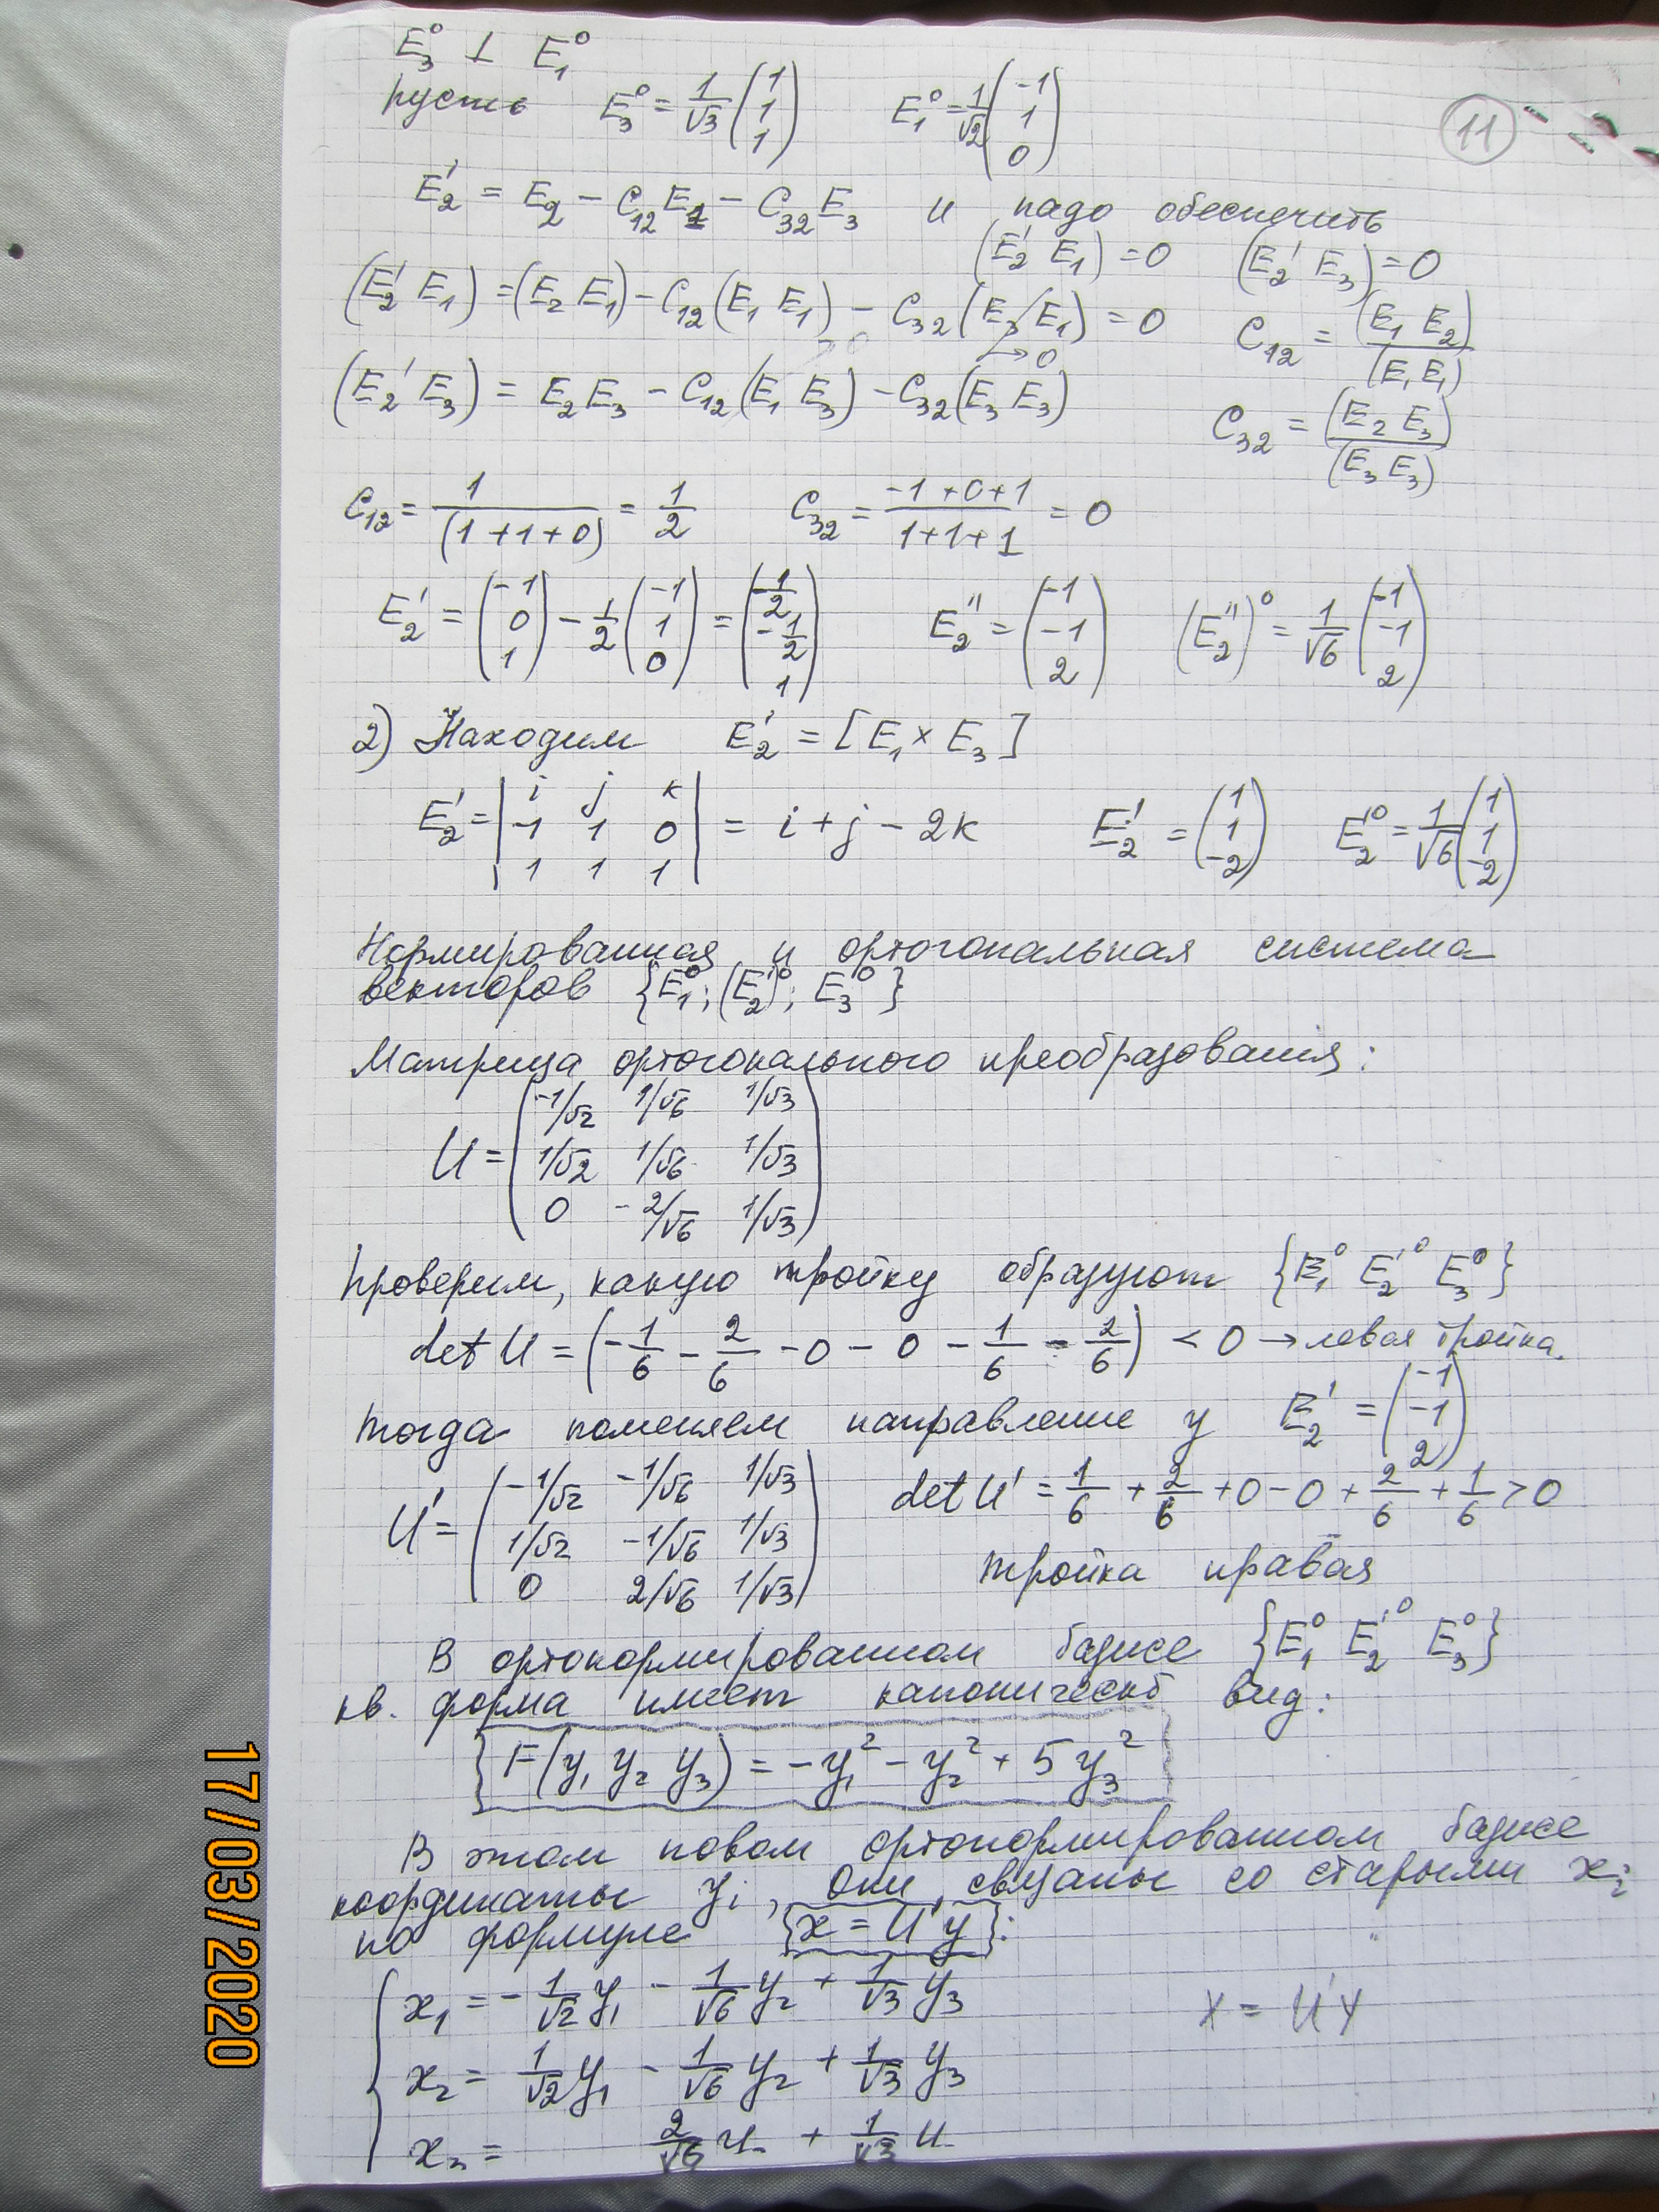 E₃⁰ ⊥ E₁⁰
пусть E₃⁰ = 1/√3 (1 1 1) E₁⁰ = 1/√2 (-1 1 0)
11
E₂' = E₂ - C₁₂E₁ - C₃₂E₃ и надо обеспечить
(E₂' E₁) = 0 (E₂' E₃) = 0
(E₂' E₁) = (E₂ E₁) - C₁₂(E₁ E₁) - C₃₂(E₃ E₁) = 0 C₁₂ = (E₁ E₂)/(E₁ E₁)
→0 →0
(E₂' E₃) = E₂E₃ - C₁₂(E₁ E₃) - C₃₂(E₃ E₃)
C₃₂ = (E₂ E₃)/(E₃ E₃)
C₁₂ = 1/(1+1+0) = 1/2 C₃₂ = (-1+0+1)/(1+1+1) = 0
E₂' = (-1 0 1) - 1/2 (-1 1 0) = (-1/2 -1/2 1) E₂'' = (-1 -1 2) (E₂'')⁰ = 1/√6 (-1 -1 2)
2) Находим E₂' = [E₁ × E₃]
E₂' = |i j k; -1 1 0; 1 1 1| = i + j - 2k E₂' = (1 1 -2) E₂'⁰ = 1/√6 (1 1 -2)
Нормированная и ортогональная система
векторов {E₁⁰; (E₂')⁰; E₃⁰}
Матрица ортогонального преобразования:
U = (-1/√2 1/√6 1/√3
1/√2 1/√6 1/√3
0 -2/√6 1/√3)
Проверим, какую тройку образуют {E₁⁰ E₂'⁰ E₃⁰}
det U = (-1/6 - 2/6 - 0 - 0 - 1/6 - 2/6) < 0 → левая тройка.
тогда поменяем направление у E₂' = (-1 -1 2)
U' = (-1/√2 -1/√6 1/√3
1/√2 -1/√6 1/√3
0 2/√6 1/√3)
det U' = 1/6 + 2/6 + 0 - 0 + 2/6 + 1/6 > 0
тройка правая
В ортонормированном базисе {E₁⁰ E₂'⁰ E₃⁰}
кв. форма имеет каноническй вид:
F(y₁ y₂ y₃) = -y₁² - y₂² + 5y₃²
В этом новом ортонормированном базисе
координаты yᵢ, они связаны со старыми xᵢ
по формуле {x = U'y}:
x₁ = -1/√2 y₁ - 1/√6 y₂ + 1/√3 y₃
X = U'Y
x₂ = 1/√2 y₁ - 1/√6 y₂ + 1/√3 y₃
x₃ = 2/√6 y₂ + 1/√3 y₃
17/03/2020